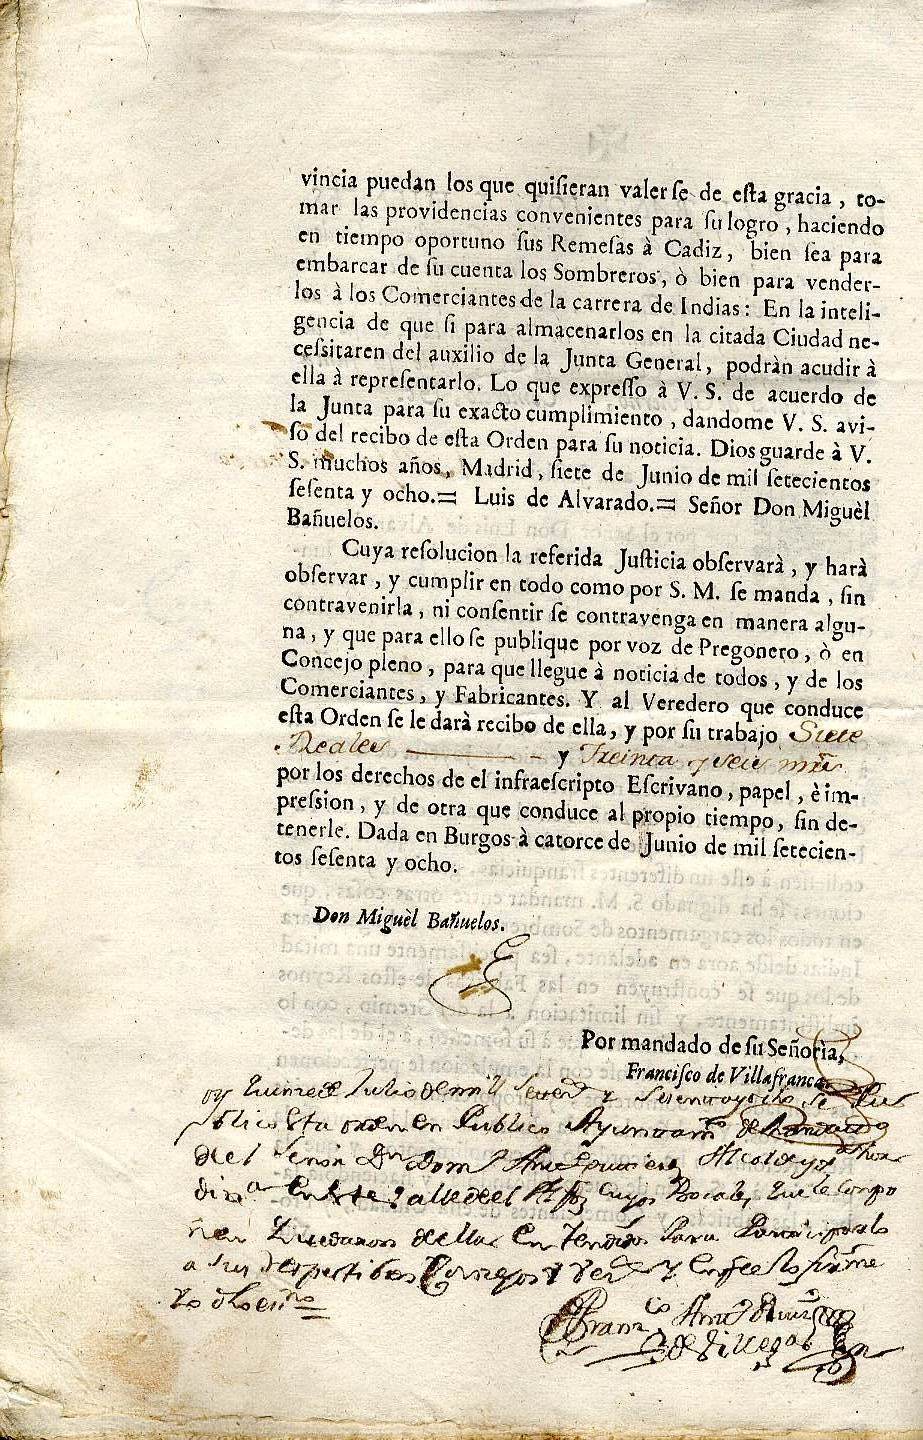 vincia puedan los que quiſieran valerſe de eſta gracia, to-
mar las providencias convenientes para ſu logro, haciendo
en tiempo oportuno ſus Remeſas à Cadiz, bien ſea para
embarcar de ſu cuenta los Sombreros, ò bien para vender-
los à los Comerciantes de la carrera de Indias: En la inteli-
gencia de que ſi para almacenarlos en la citada Ciudad ne-
ceſsitaren del auxilio de la Junta General, podràn acudir à
ella à repreſentarlo. Lo que expreſſo à V. S. de acuerdo de
la Junta para ſu exacto cumplimiento, dandome V. S. avi-
ſo del recibo de eſta Orden para ſu noticia. Dios guarde à V.
S. muchos años, Madrid, ſiete de Junio de mil ſetecientos
ſeſenta y ocho.= Luis de Alvarado.= Señor Don Miguèl
Bañuelos.
Cuya reſolucion la referida Juſticia obſervarà, y harà
obſervar, y cumplir en todo como por S. M. ſe manda, ſin
contravenirla, ni conſentir ſe contravenga en manera algu-
na, y que para ello ſe publique por voz de Pregonero, ò en
Concejo pleno, para que llegue à noticia de todos, y de los
Comerciantes, y Fabricantes. Y al Veredero que conduce
eſta Orden ſe le darà recibo de ella, y por ſu trabajo Siete
Reales — y Treinta y seis mrs
por los derechos de el infraeſcripto Eſcrivano, papel, è im-
preſsion, y de otra que conduce al propio tiempo, ſin de-
tenerle. Dada en Burgos à catorce de Junio de mil ſetecien-
tos ſeſenta y ocho.
Don Miguèl Bañuelos.
Por mandado de ſu Señorìa,
Franciſco de Villafranca.
oy quince de Julio de mil Setecs y Sesentayocho se Pu
blico esta orden en Publico Ayuntamto de
del Señor Dn Alcalde y
en este Valle de cuyos Vocales que le compo
nen quedaron de ella entendidos Para Participarlo
a sus Respectibos Conzejos y y en fee lo firme
Yo dho essno
Franco
de Villegas